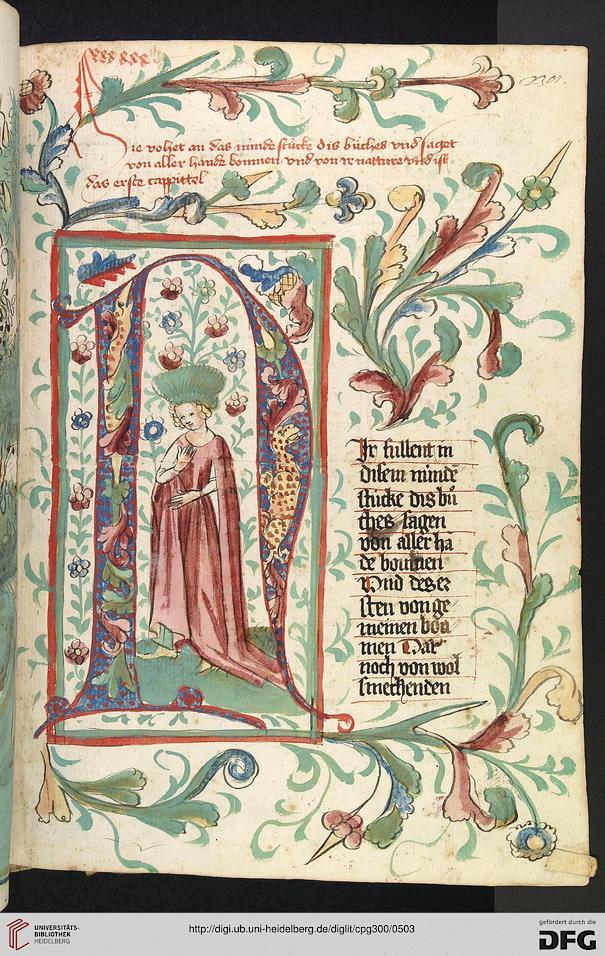 Hie vohet an das nünde stücke dis büches vnd saget
von aller hande boumen vnd von ir nature vnd ist
das erste cappittel
Ir süllent in
disem nünde
stücke dis bů
ches sagen
von aller ha
de boumen
Vnd des er
sten von ge
meinen bou
men Dar
noch von wol
smeckenden
UNIVERSITÄTS-
BIBLIOTHEK
HEIDELBERG
http://digi.ub.uni-heidelberg.de/diglit/cpg300/0503
gefördert durch die
DFG